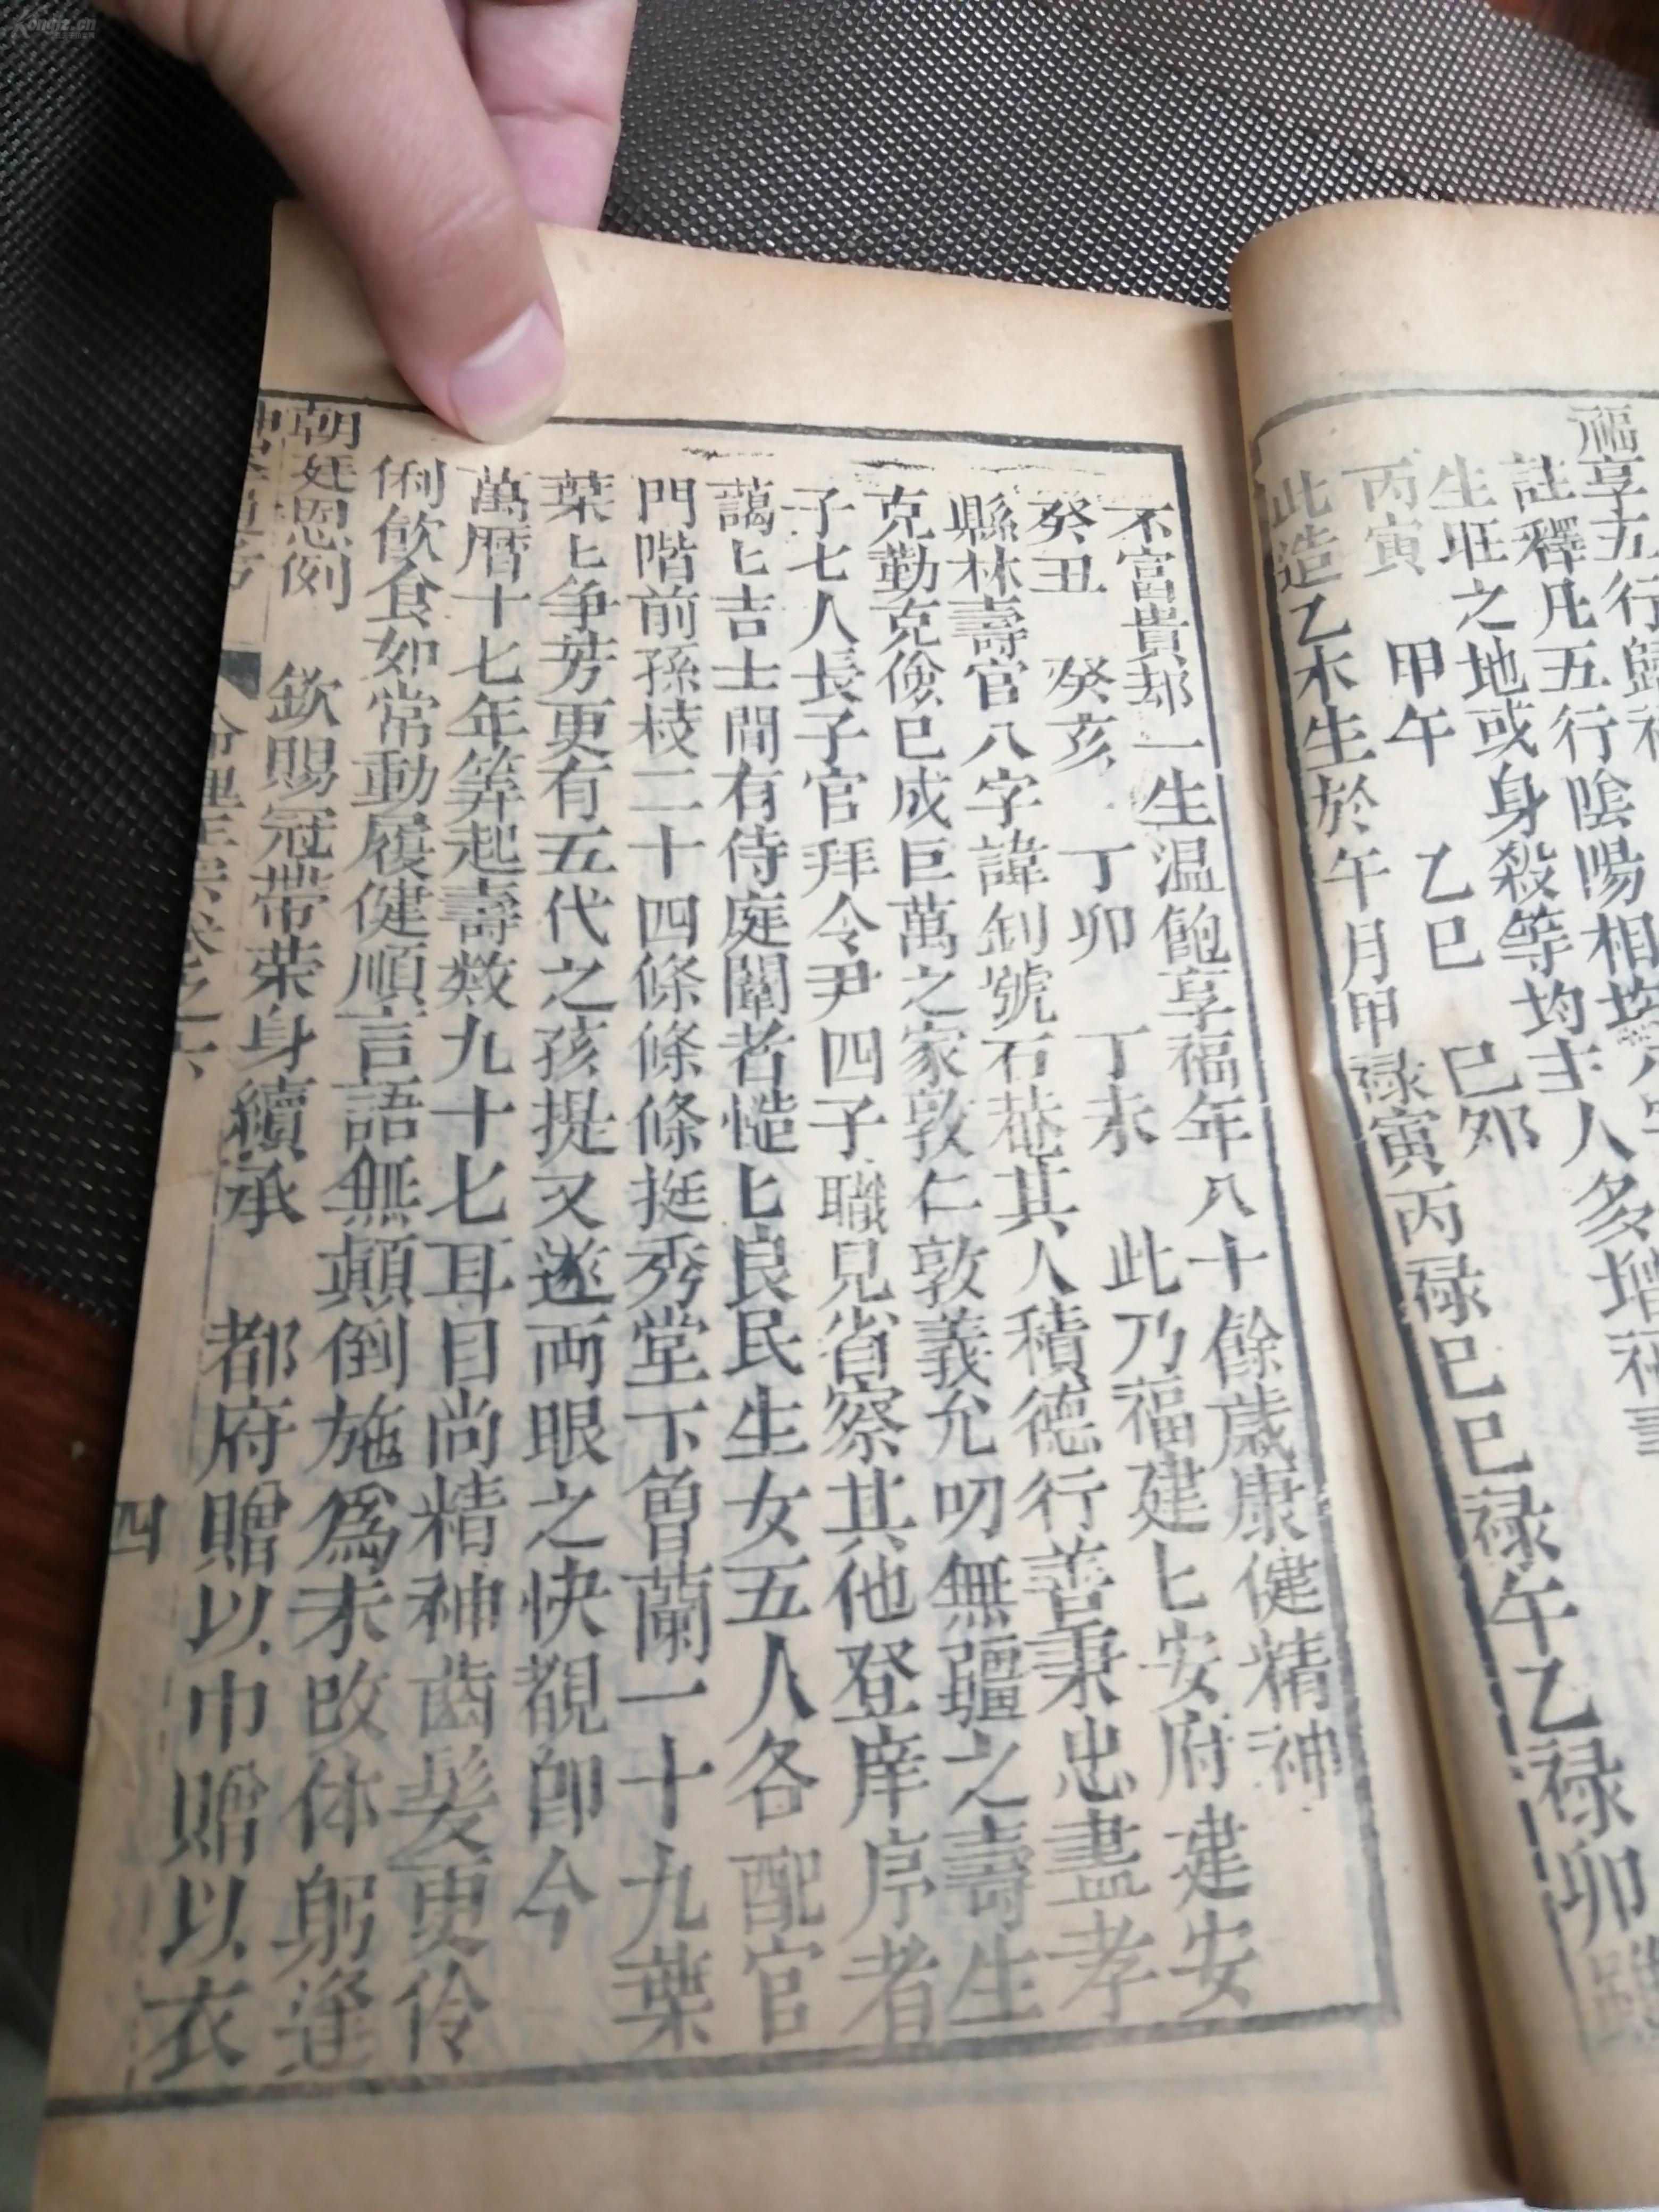 福享五行
註釋凡五行陰陽相均主人多增福
生旺之地或身殺等均
丙寅 甲午 乙巳 己卯
此造乙木生於午月甲祿寅丙祿巳巳祿午乙祿卯
不富貴却一生温飽享福年八十餘歲康健精神
癸丑 癸亥 丁卯 丁未 此乃福建匕安府建安
縣林壽官八字諱釗號石菴其人積德行善秉忠盡孝
克勤克儉已成巨萬之家敦仁敦義允叨無疆之壽生
子七人長子官拜令尹四子職見省察其他登庠序者
藹匕吉士間有侍庭闈者慥匕良民生女五人各配官
門階前孫枝二十四條條條挺秀堂下曾蘭一十九葉
葉匕争芳更有五代之孩提又遂両眼之快覩即今
萬曆十七年筭起壽数九十七耳目尚精神齒髪更伶
俐飲食如常動履健順言語無顛倒施為未改体躬逢
朝廷恩例 欽賜冠帶荣身續承 都府贈以巾贈以衣
命理正宗卷之六 四